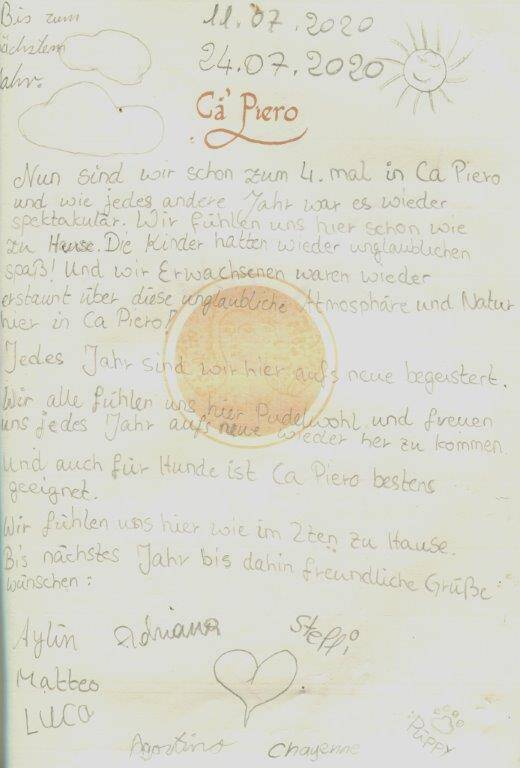 Bis zum
nächstem
Jahr.
11.07.2020
24.07.2020
Ca' Piero
Nun sind wir schon zum 4. mal in Ca Piero
und wie jedes andere Jahr war es wieder
spektakulär. Wir fühlen uns hier schon wie
zu Hause. Die Kinder hatten wieder unglaublichen
spaß! Und wir Erwachsenen waren wieder
erstaunt über diese unglaubliche Atmosphäre und Natur
hier in Ca Piero!
Jedes Jahr sind wir hier aufs neue begeistert.
Wir alle fühlen uns hier Pudelwohl und freuen
uns jedes Jahr aufs neue wieder her zu kommen.
Und auch für Hunde ist Ca Piero bestens
geeignet.
Wir fühlen uns hier wie im 2ten zu Hause.
Bis nächstes Jahr bis dahin freundliche Grüße
wünschen:
Aylin Adriana Steffi
Matteo
LUCA
Agostino Chayenne
Puppy